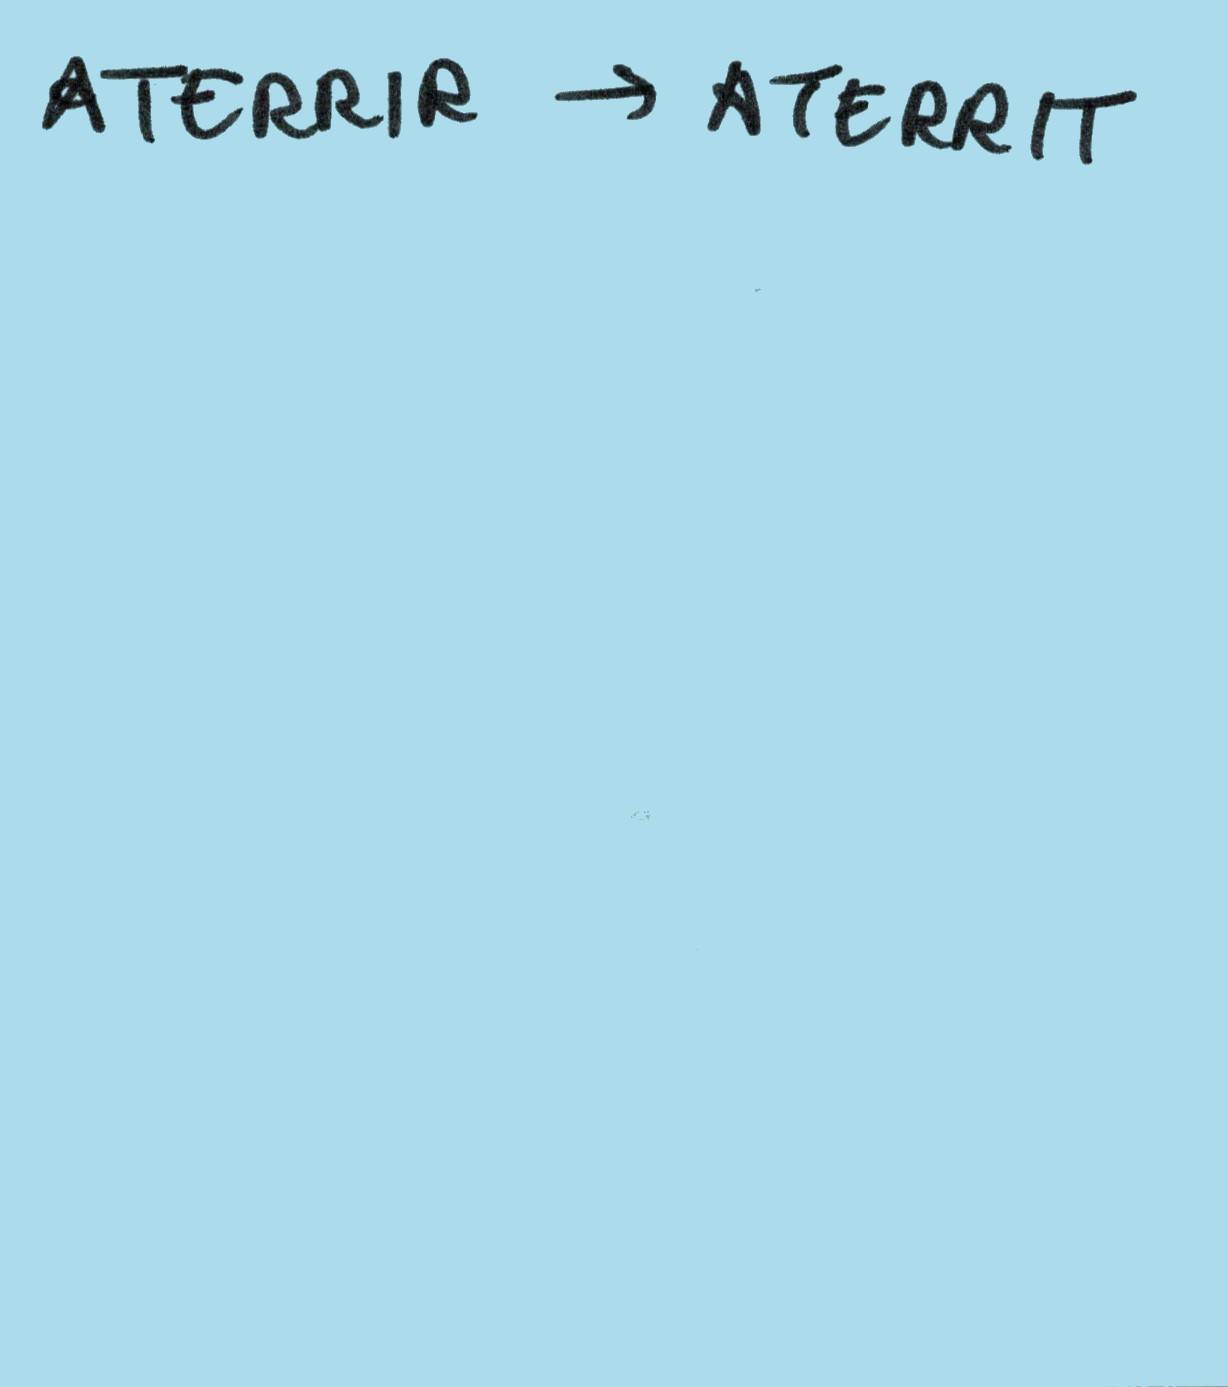 ATERRIR → ATERRIT